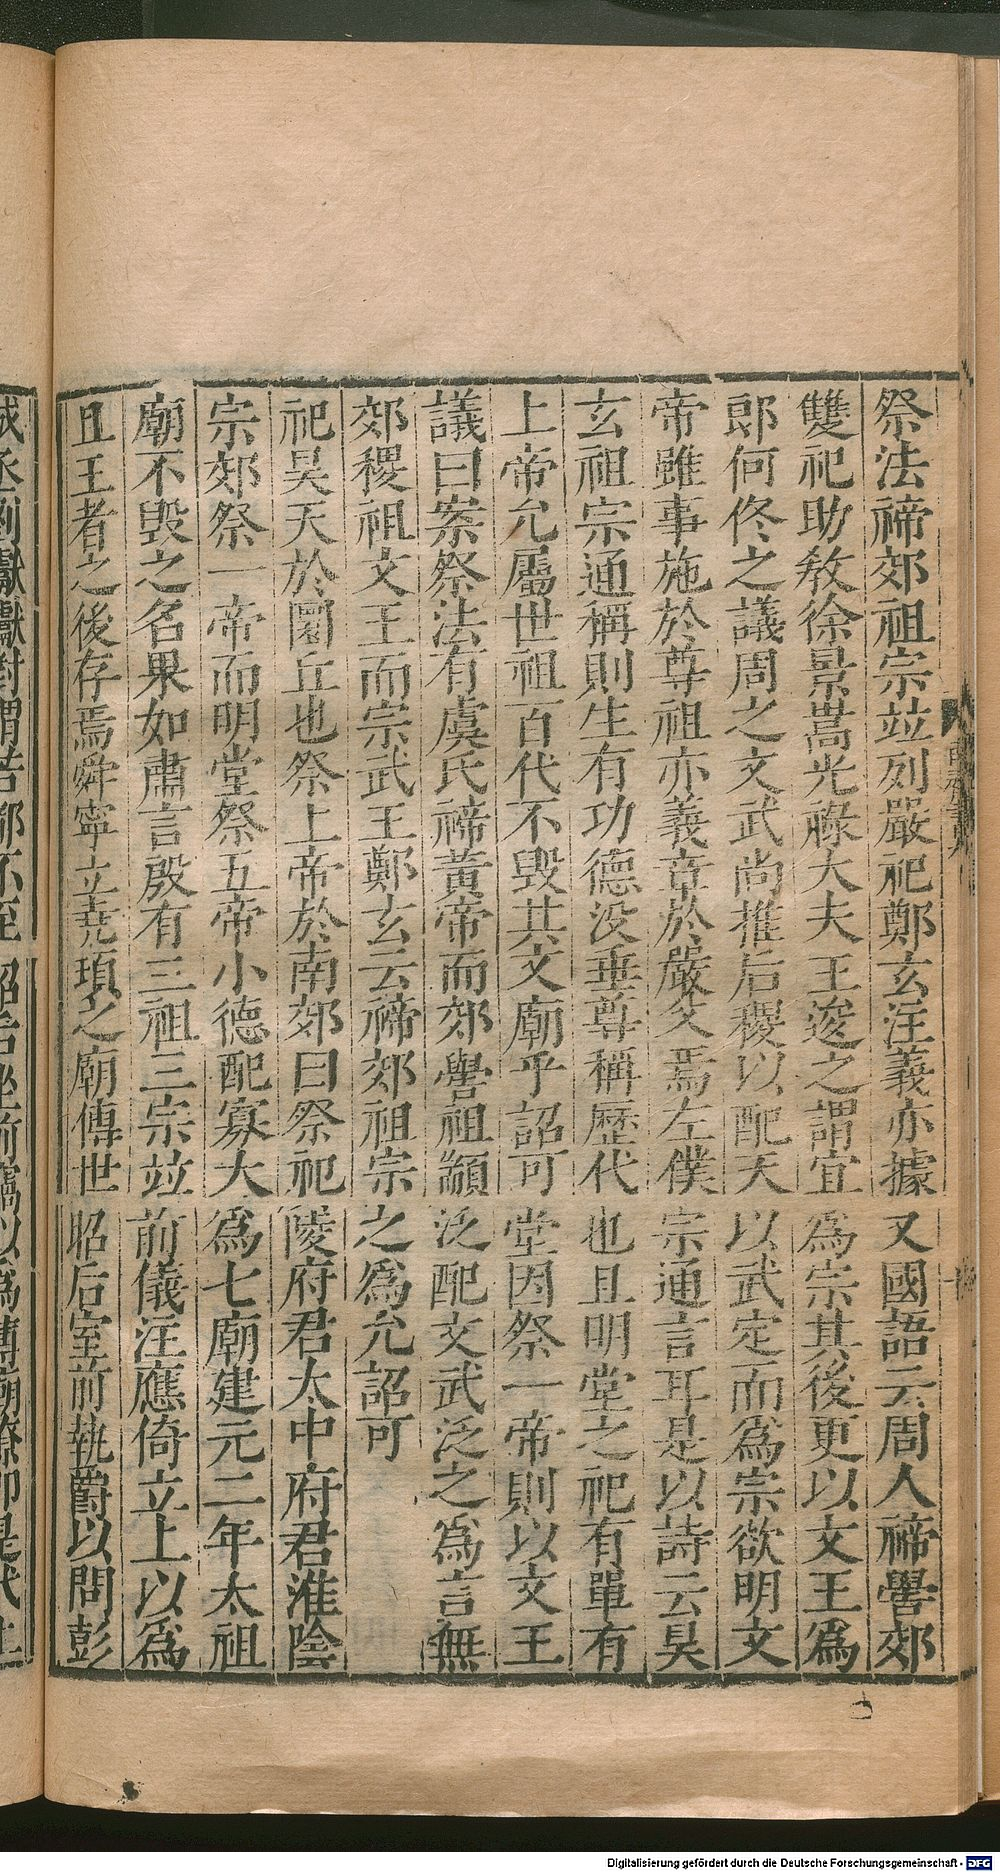 祭法禘郊祖宗竝列嚴祀鄭玄注義亦據又國語云周人禘嚳郊
雙祀助教徐景嵩光祿大夫王逡之謂宜為宗其後更以文王為
郎何佟之議周之文武尚推后稷以配天以武定而為宗欲明文
帝雖事施於尊祖亦義章於嚴父焉左僕宗通言耳是以詩云昊
玄祖宗通稱則生有功德没垂尊稱歷代也且明堂之祀有單有
上帝允屬世祖百代不毀其文廟乎詔可堂因祭一帝則以文王
議曰案祭法有虞氏禘黃帝而郊嚳祖顓泛配文武泛之為言無
郊稷祖文王而宗武王鄭玄云禘郊祖宗之為允詔可
祀昊天於圜丘也祭上帝於南郊曰祭祀陵府君太中府君淮陰
宗郊祭一帝而明堂祭五帝小德配寡大為七廟建元二年太祖
廟不毀之名果如肅言殷有三祖三宗竝前儀注應倚立上以為
且王者之後存焉舜寧立堯頊之廟傳世昭后室前執爵以問彭
Digitalisierung gefördert durch die Deutsche Forschungsgemeinschaft - DFG